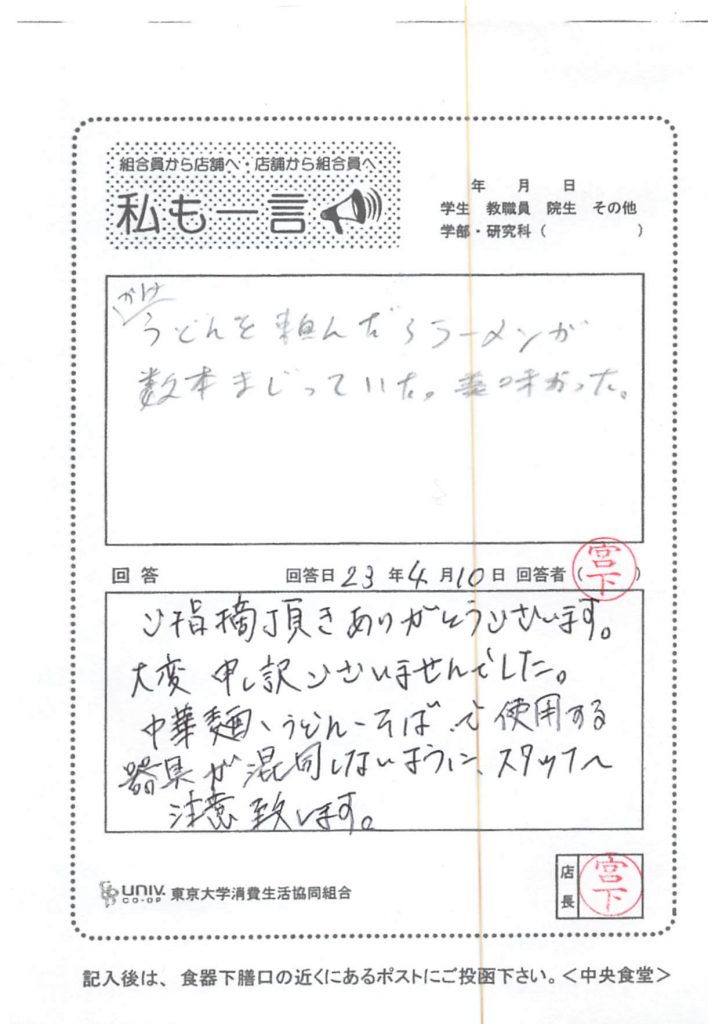 組合員から店舗へ・店舗から組合員へ
私も一言
年 月 日
学生 教職員 院生 その他
学部・研究科 ( )
かけ
うどんを頼んだらラーメンが
数本まじっていた。美味かった。
回答 回答日 23 年 4 月 10 日 回答者 (宮下)
ご指摘頂きありがとうございます。
大変申し訳ございませんでした。
中華麺、うどん・そばで使用する
器具が混同しないように、スタッフへ
注意致します。
UNIV. CO-OP 東京大学消費生活協同組合
店長 宮下
記入後は、食器下膳口の近くにあるポストにご投函下さい。<中央食堂>